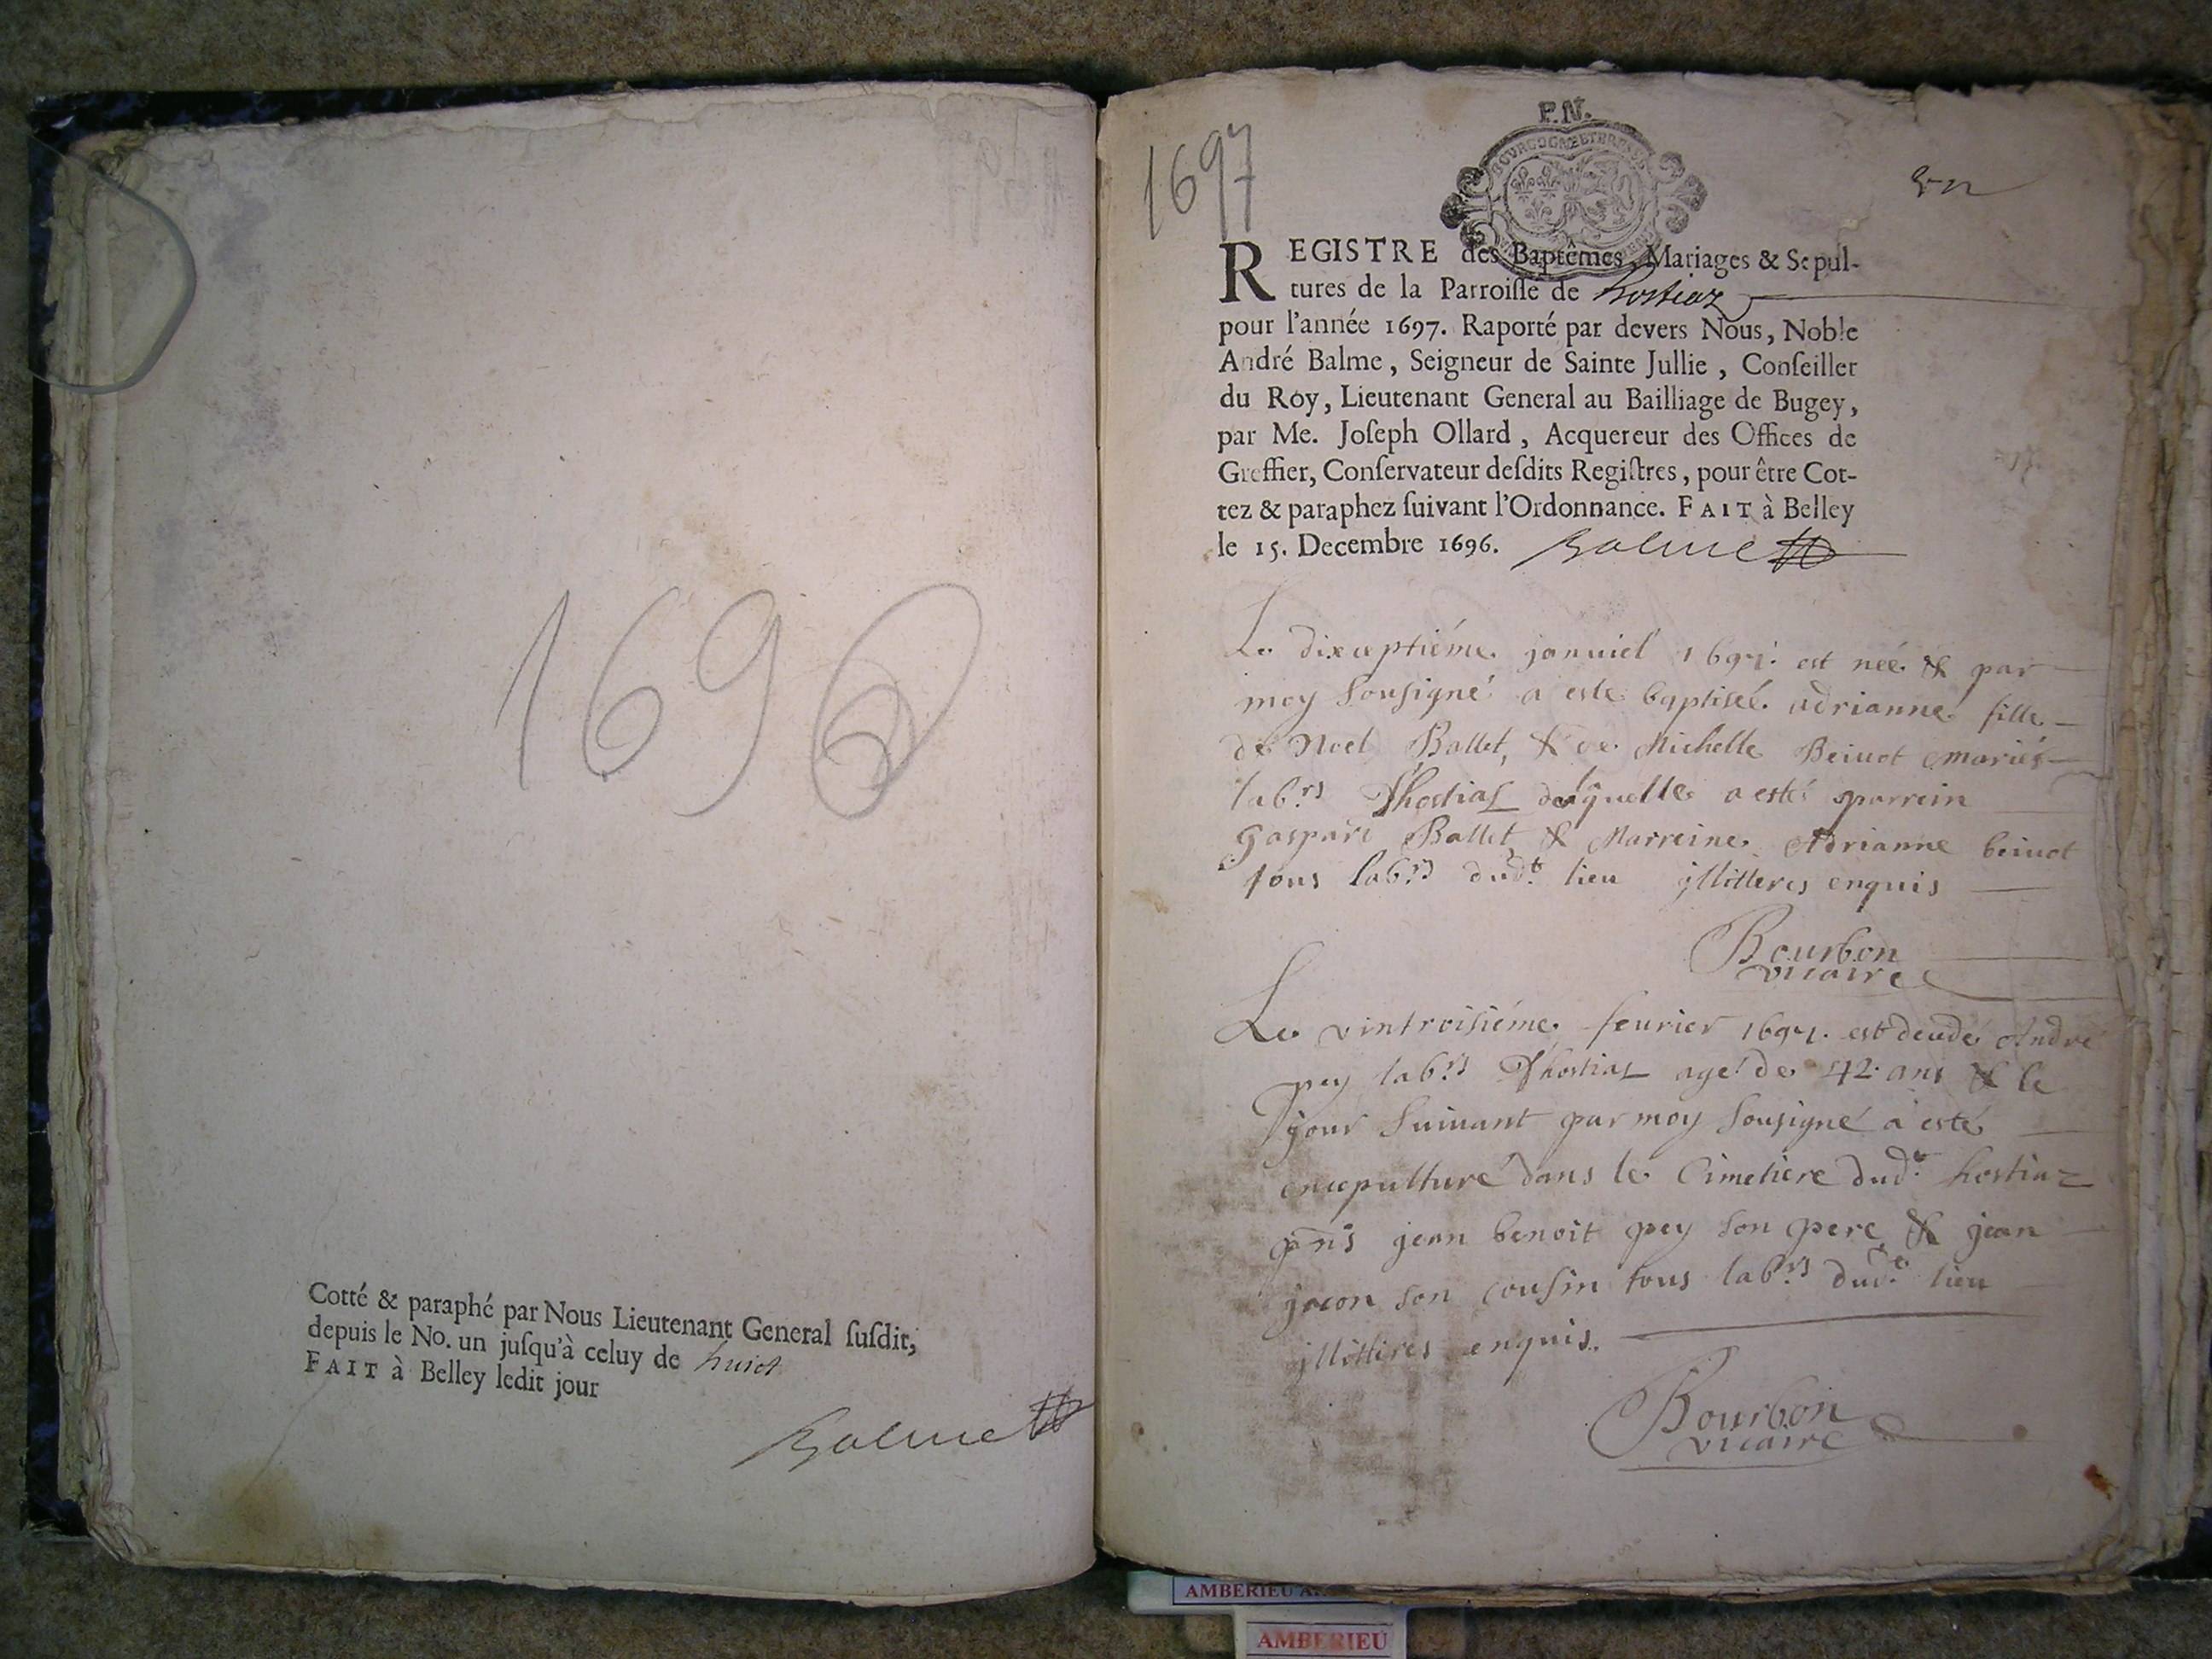 1696
Cotté & paraphé par Nous Lieutenant General ſuſdit,
depuis le No. un juſqu'à celuy de huict
FAIT à Belley ledit jour
Balme
1697
P.N.
un
REGISTRE des Baptêmes, Mariages & Sepul-
tures de la Parroiſſe de hostiaz
pour l'année 1697. Raporté par devers Nous, Noble
André Balme, Seigneur de Sainte Jullie, Conſeiller
du Roy, Lieutenant General au Bailliage de Bugey,
par Me. Joſeph Ollard, Acquereur des Offices de
Greffier, Conſervateur deſdits Regiſtres, pour être Cot-
tez & paraphez ſuivant l'Ordonnance. FAIT à Belley
le 15. Decembre 1696. Balme
Le dixceptiéme januier 1697. est née & par
moy sousigné a esté baptisée adrianne fille
de Noel Ballet, & de Michelle Beiuot mariés
lab.rs d'hostias delaquelle a estés parrein
gaspard Ballet & Marreine Adrianne beiuot
tous lab.rs dud.t lieu illitteres enquis
Bourbon
vicaire
Le vintroisiéme feurier 1697. est decedé André
pey lab.rs d'hostias agé de 42 ans & le
jour suiuant par moy sousigné a esté
encepulturé dans le Cimetiere dud.t hostiaz
pñs jean benoit pey son pere & jean
jacon son cousin tous lab.rs dud.t lieu
illitteres enquis.
Bourbon
vicaire
AMBERIEU
AMBERIEU